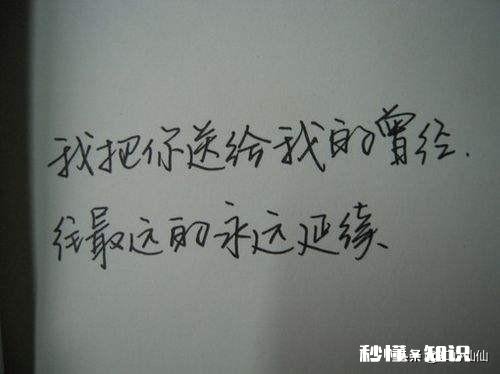 我把你送给我的曾经.
往最远的永远延续、
秒懂 知识